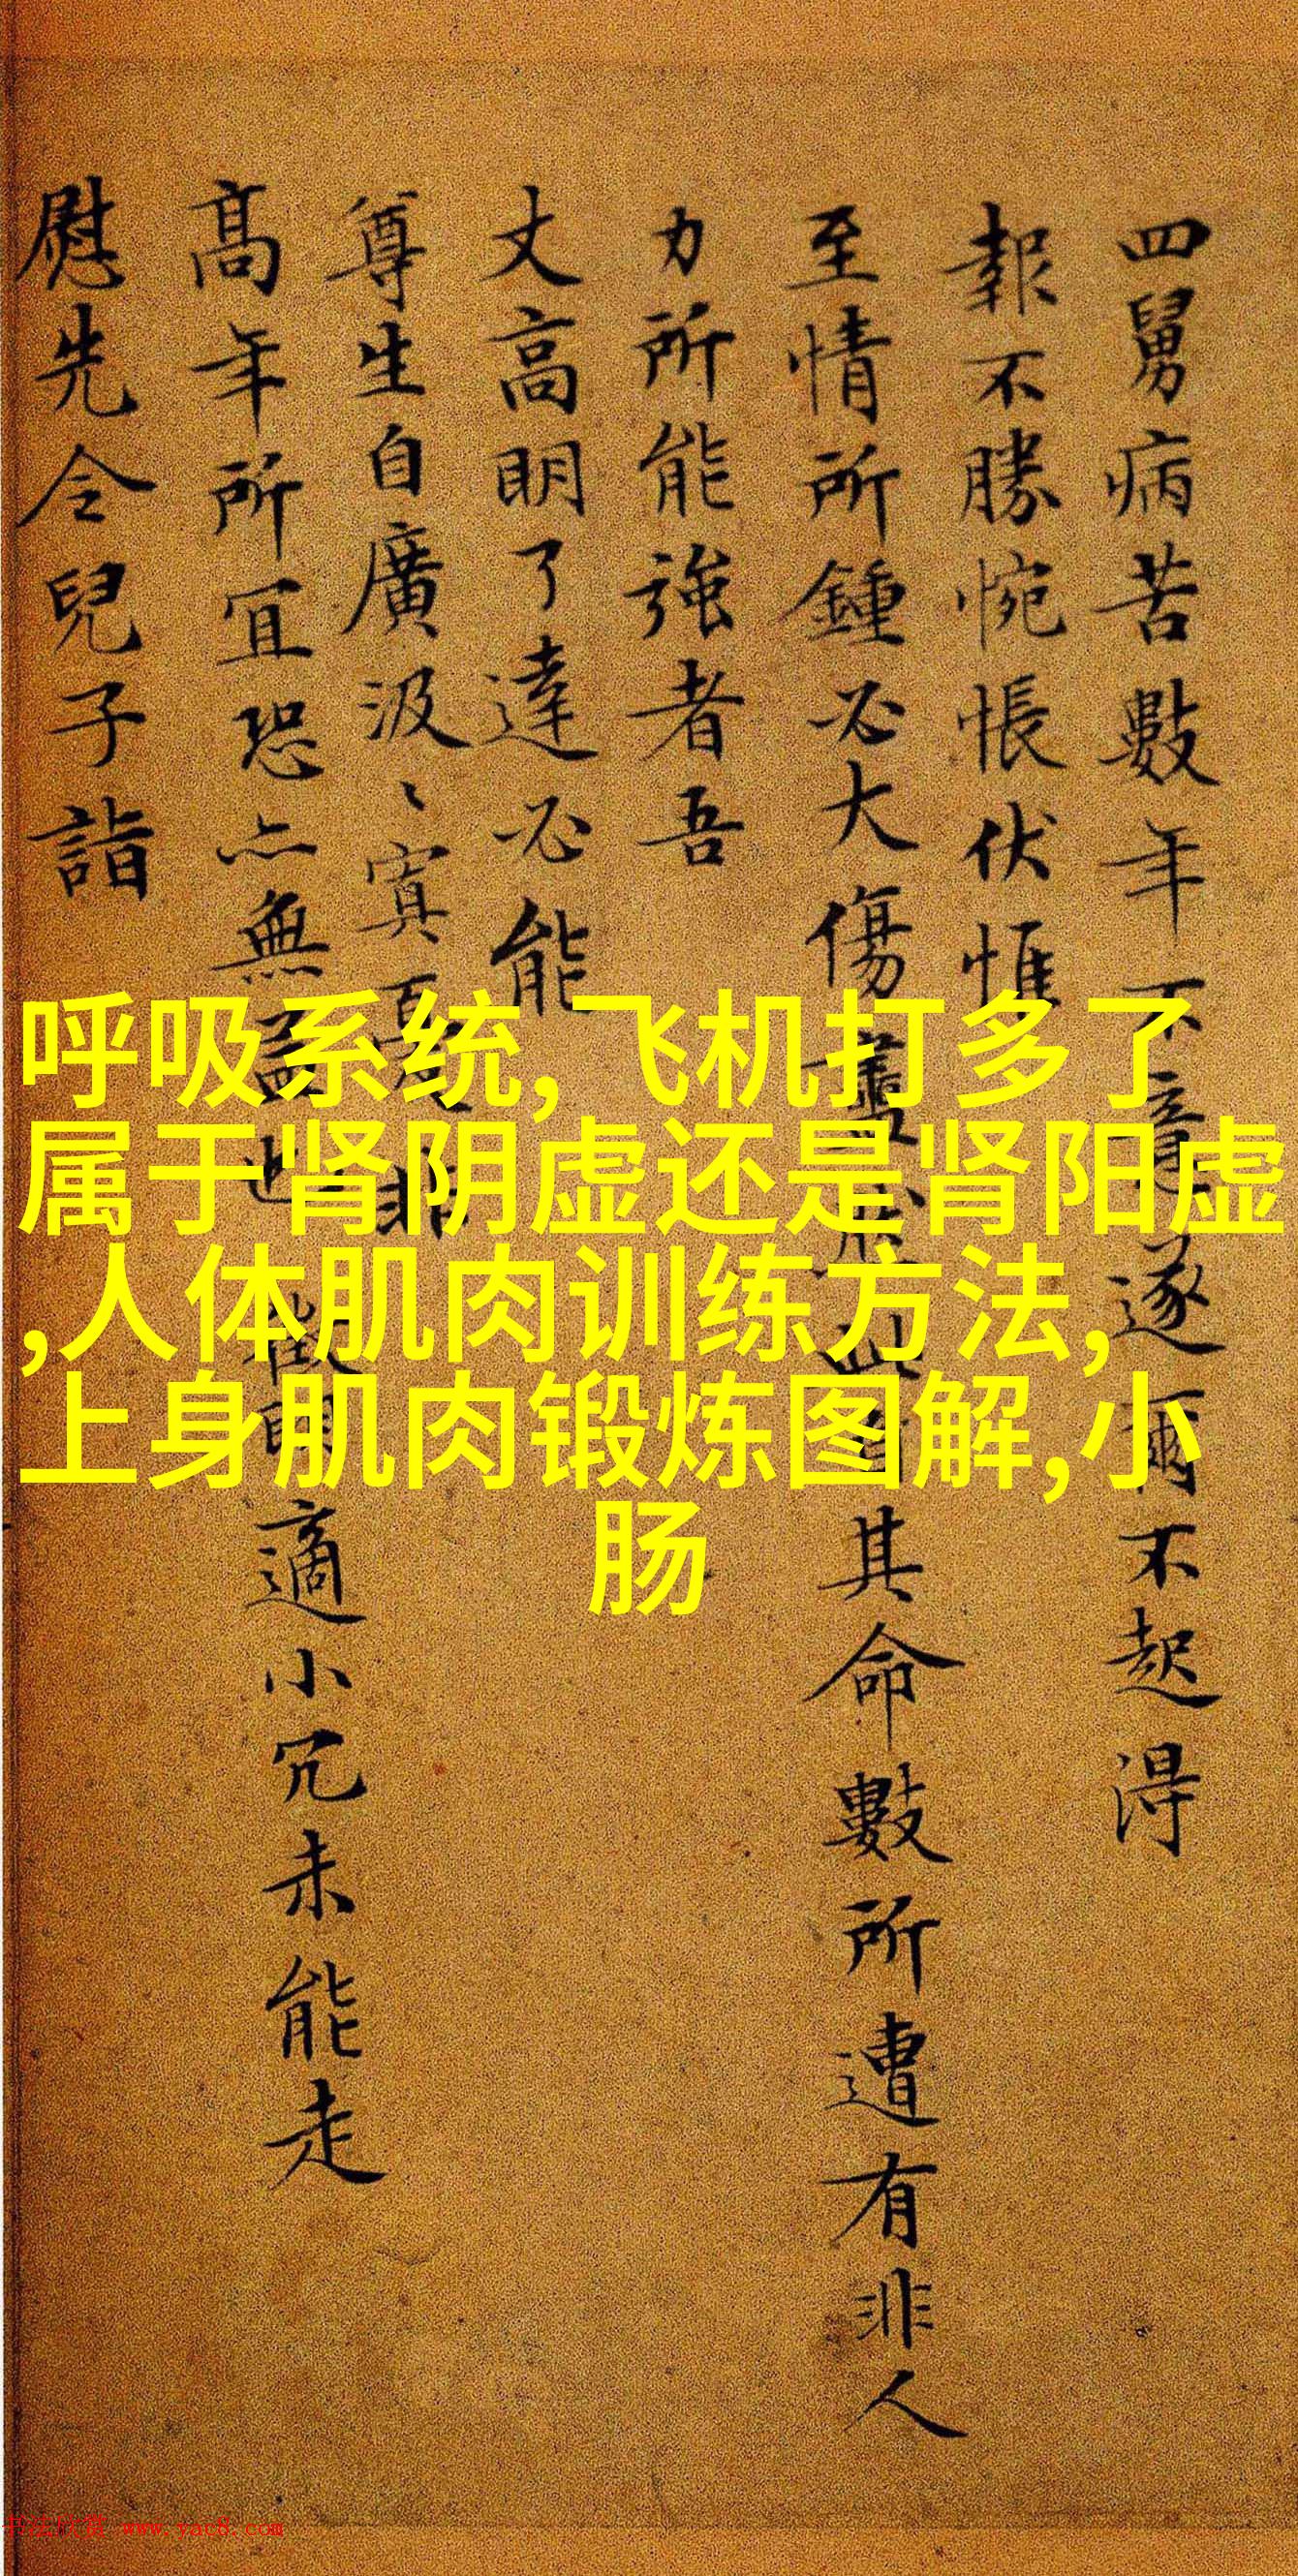 四舅病苦數年不意遂爾不起得
報不勝惋悵伏惟
至情所鍾必大傷
其命數所遭有非人
力所能強者吾
丈高明了達必能
尊生自廣汲〻寘
高年所宜恐亦無益也
適小冗未能走
慰先令兒子詣
呼吸系统,飞机打多了
属于肾阴虚还是肾阳虚
,人体肌肉训练方法,
上身肌肉锻炼图解,小
肠
书法欣赏 www.yac8.com